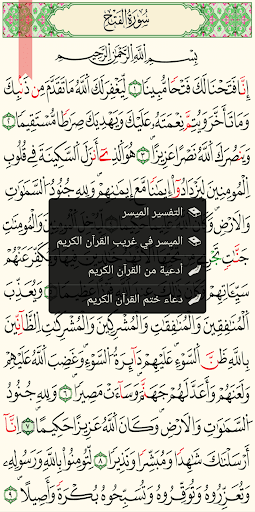 سُورَةُ الفَتْحِ
بِسْمِ اللَّهِ الرَّحْمَٰنِ الرَّحِيمِ
إِنَّا فَتَحْنَا لَكَ فَتْحًا مُّبِينًا ١ لِّيَغْفِرَ لَكَ اللَّهُ مَا تَقَدَّمَ مِن ذَنۢبِكَ
وَمَا تَأَخَّرَ وَيُتِمَّ نِعْمَتَهُۥ عَلَيْكَ وَيَهْدِيَكَ صِرَٰطًا مُّسْتَقِيمًا ٢
وَيَنصُرَكَ اللَّهُ نَصْرًا عَزِيزًا ٣ هُوَ الَّذِىٓ أَنزَلَ السَّكِينَةَ فِى قُلُوبِ
الْمُؤْمِنِينَ لِيَزْدَادُوٓا۟ إِيمَٰنًا مَّعَ إِيمَٰنِهِمْ ۗ وَلِلَّهِ جُنُودُ السَّمَٰوَٰتِ
وَالْأَرْضِ
وَالْمُؤْمِنَٰتِ
جَنَّٰتٍ
التفسير الميسر
الميسر في غريب القرآن الكريم
أدعية من القرآن الكريم
دعاء ختم القرآن الكريم
وَيُكَفِّرَ عَنْهُمْ
سَيِّـَٔاتِهِمْ
وَيُعَذِّبَ
الْمُنَٰفِقِينَ وَالْمُنَٰفِقَٰتِ وَالْمُشْرِكِينَ وَالْمُشْرِكَٰتِ الظَّآنِّينَ
بِاللَّهِ ظَنَّ السَّوْءِ ۚ عَلَيْهِمْ دَآئِرَةُ السَّوْءِ ۖ وَغَضِبَ اللَّهُ عَلَيْهِمْ
وَلَعَنَهُمْ وَأَعَدَّ لَهُمْ جَهَنَّمَ ۖ وَسَآءَتْ مَصِيرًا ٦ وَلِلَّهِ جُنُودُ
السَّمَٰوَٰتِ وَالْأَرْضِ ۚ وَكَانَ اللَّهُ عَزِيزًا حَكِيمًا ٧ إِنَّآ
أَرْسَلْنَٰكَ شَٰهِدًا وَمُبَشِّرًا وَنَذِيرًا ٨ لِّتُؤْمِنُوا۟ بِاللَّهِ وَرَسُولِهِۦ
وَتُعَزِّرُوهُ وَتُوَقِّرُوهُ وَتُسَبِّحُوهُ بُكْرَةً وَأَصِيلًا ٩